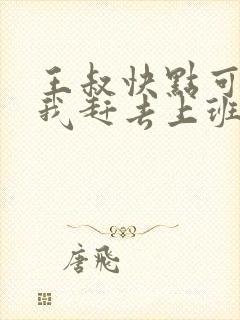 王叔快點可
我赶去上班
唐飛